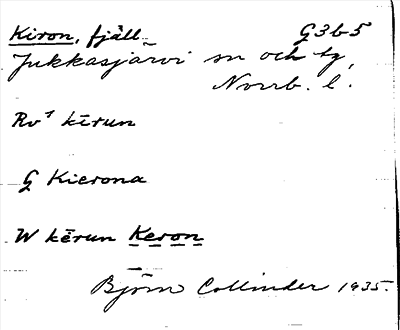 Kiron, fjäll G3b5
Jukkasjärvi sn och tg,
Norrb. l.
Rv¹ kērun
G Kierona
W kērun Keron
Björn Collinder 1935.